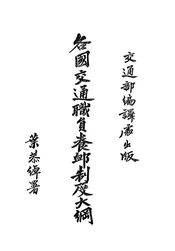 交通部編譯處出版
各國交通職員養卹制度大綱
葉恭綽署